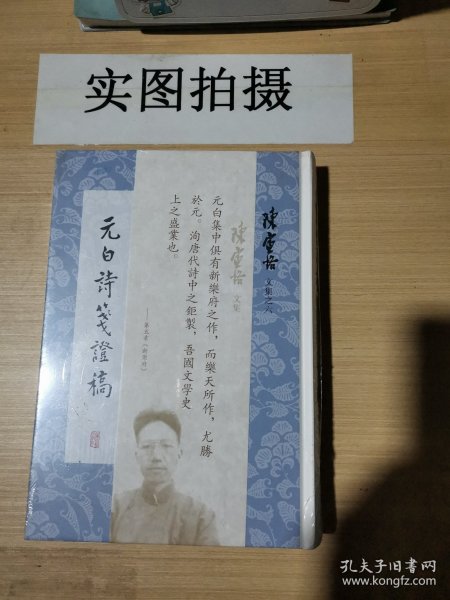 实图拍摄
陳寅恪
文集之六
陳寅恪
文集
元白集中俱有新樂府之作，而樂天所作，尤勝
於元。洵唐代詩中之鉅製，吾國文學史
上之盛業也。
——第五章《新樂府》
元白詩箋證稿
孔夫子旧书网
www.kongfz.com